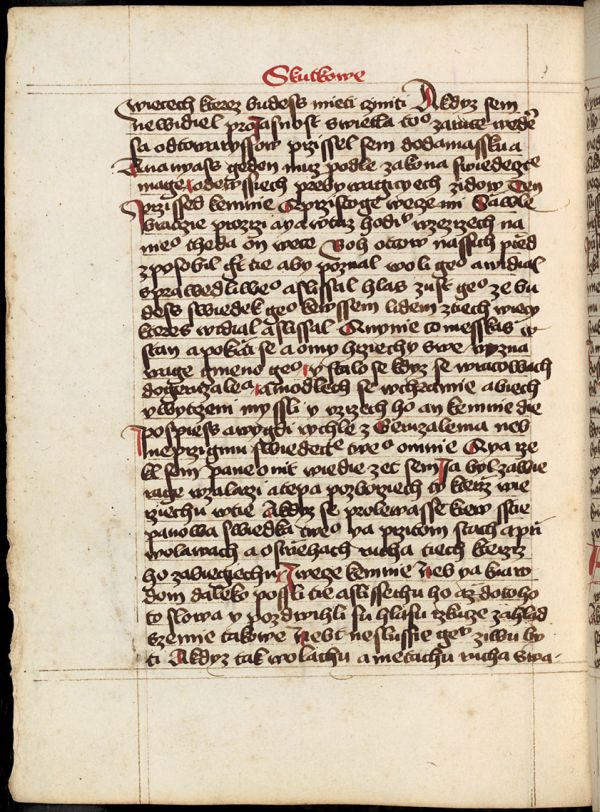 Skutkowe
wietech kterez budess mieti cziniti A kdyz sem
newidiel pro jasnost swietla to° za ruce weden
sa od towarzyssow przissel sem do damassku a
Ananyass geden muz podle zakona swiedecztwie
magie ode wssiech przebywagiczych zidow Ten
przissed ke mnie A przistoge wecze mi Sawle
bratrzie prozrzi a ya w tuz hodinu wzezrzech na
neo tehda on wece Boh otczow nassich przed
zposobil gt tie aby poznal woli geo a widial
sprawedliweo a slissal hlas z ust geo ze bu
dess swiedek geo ke wssem lidem z tiech wieczy
kteres widial a slissal A nynie co messkas w
stan a pokrti se a omy hrziechy swe wzyna
wage gmeno geo y stalo se kdyz se wratowach
do geruzalema a modlech se w chramie a biech
v wytrzeni myssli y vzrzech ho an ke mnie die
pospiess a wygdi rychle z Geruzalema neb
ne przigmu swiedectwie tweo o mnie A ya rze
kl sem pane oni wiedie zet sem ja byl zawie
rage w zalarzi a tepa po zborziech ty kterz wie
rziechu w tie A kdyz se prolewasse krew sstie
panowa swiedka tweo ya przitom stach a pri
wolawach a ostriehach rucha tiech kterziz
ho zabiegiechu I wecze ke mnie Neb ya k naro
dom daleko possli tie a slissechu ho az do toho
to slowa y pozdwihli su hlasu rzkuze zahlad
z zemie takowe Nebt ne slussie gey ziwu by
ti A kdyz tak wolachu a metachu rucha swa